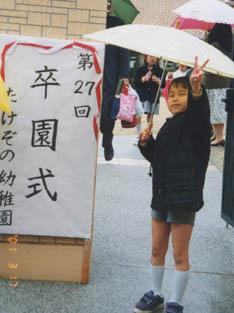 第27回
卒園式
たけぞの幼稚園
'01 3 17